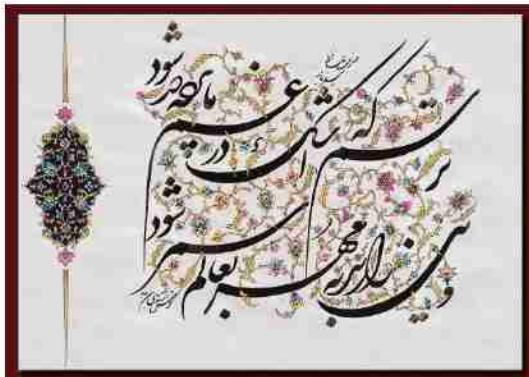 ترسم که اشک در غم ما پرده در شود
وین راز سر به مهر بعالم سمر شود